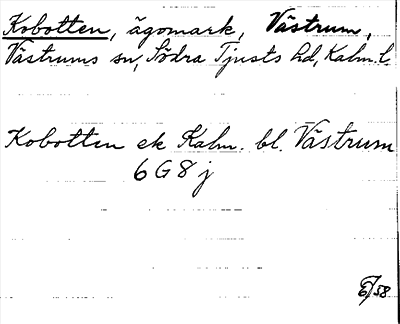 Kobotten, ägomark, Västrum,
Västrums sn, Södra Tjusts hd, Kalm. l.
Kobotten ek Kalm. bl. Västrum
6 G 8 j
6/58